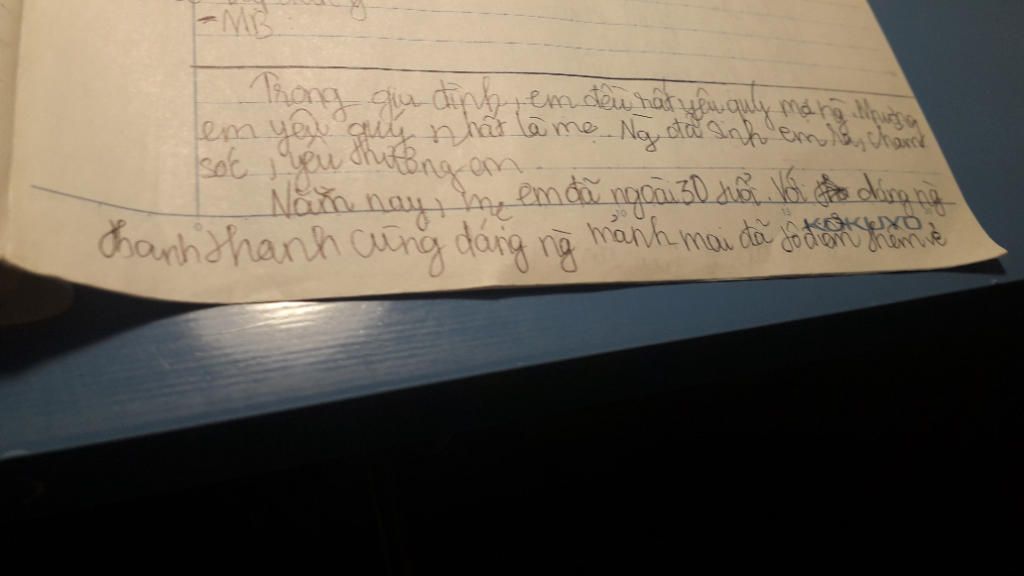 - MB
Trong gia đình, em đều rất yêu quý mọi ng. Nhưng
em yêu quý nhất là mẹ. Ng đã sinh em ra, chăm
sóc, yêu thương em
Năm nay, mẹ em đã ngoài 30 tuổi. Với dáng ng
thanh thanh cùng dáng ng mảnh mai đã tô thêm vẻ
KOKUYO